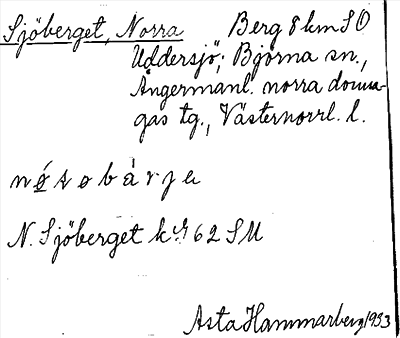 Sjöberget, Norra Berg 8 km SO
Uddersjö; Björna sn.,
Ångermanl. norra doma-
gas tg., Västernorrl. l.
N. Sjöberget 62 SM
Asta Hammarberg 1933